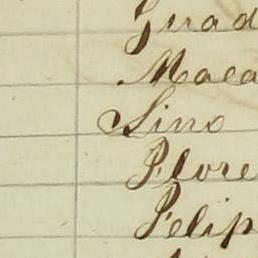 Guad
Maca
Sino
Flore
Felip